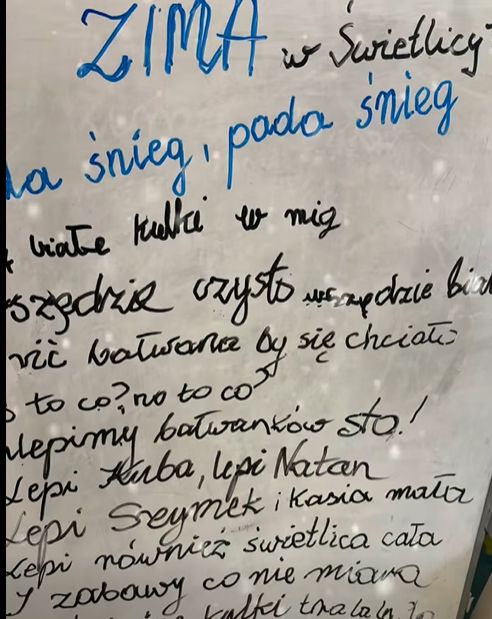 ZIMA w Świetlicy
da śnieg, pada śnieg
białe kulki w mig
szędzie czysto wszędzie bia
wić bałwana by się chciało
to co? no to co?
lepimy bałwanków sto!
Lepi Kuba, lepi Natan
Lepi Szymek i Kasia mała
Lepi również świetlica cała
I zabawy co nie miara
kulki tralala